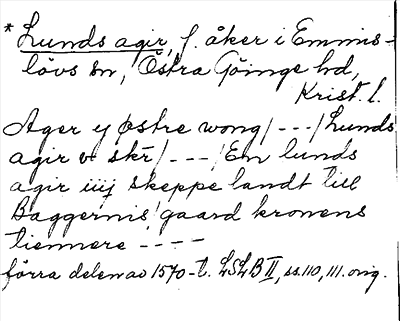 * Lunds agir, f. åker i Emmis-
lövs sn, Östra Göinge hd,
Krist. l.
Ager y østre wong / - - - / Lunds
agir vi skr̄ / - - - / En lunds
agir iiij skeppe landt till
Baggernis gaard kronens
tiennere - - - -
förra delen av 1570-t. LSLB II, ss. 110, 111. orig.